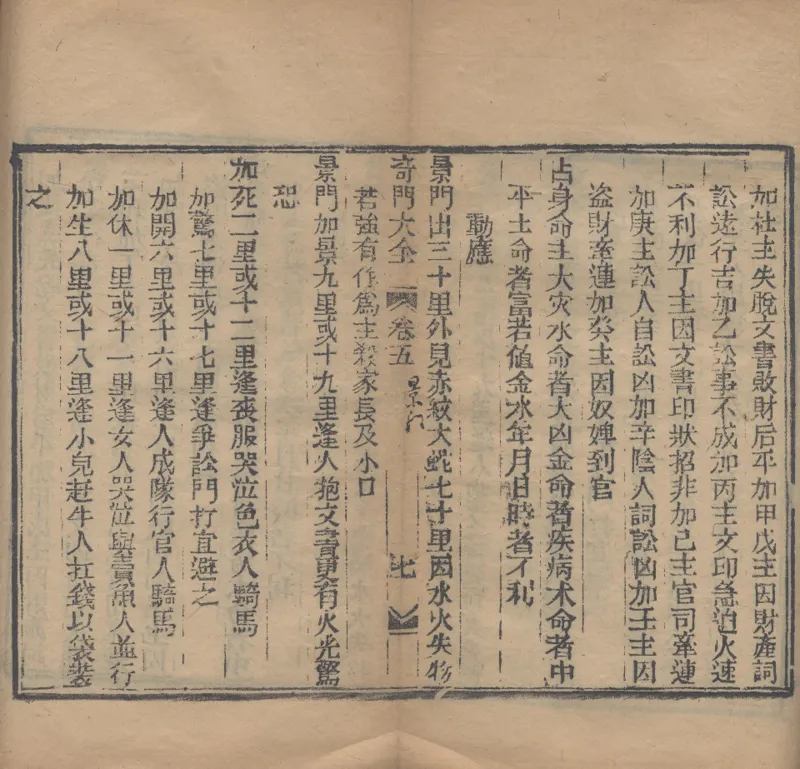 加杜主失脫文書敗財后平加甲戊主因財產詞
訟遠行吉加乙訟事不成加丙主文印急迫火速
不利加丁主因文書印狀招非加己主官司牽連
加庚主訟人自訟凶加辛陰人詞訟凶加壬主因
盜財牽連加癸主因奴婢到官
占身命主大灾水命者大凶金命者疾病木命者中
平土命者富若値金水年月日時者不利
動應
景門出三十里外見赤紋大蛇七十里因水火失物
奇門大全
卷五
景门
七
若強有作爲主殺家長及小口
景門加景九里或十九里逢人抱文書更有火光驚
恐
加死二里或十二里逢喪服哭泣色衣人騎馬
加驚七里或十七里逢爭訟門打宜避之
加開六里或十六里逢人成隊行官人騎馬
加休一里或十一里逢女人哭泣與賣魚人並行
加生八里或十八里逢小兒赶牛人扛錢以袋裝
之